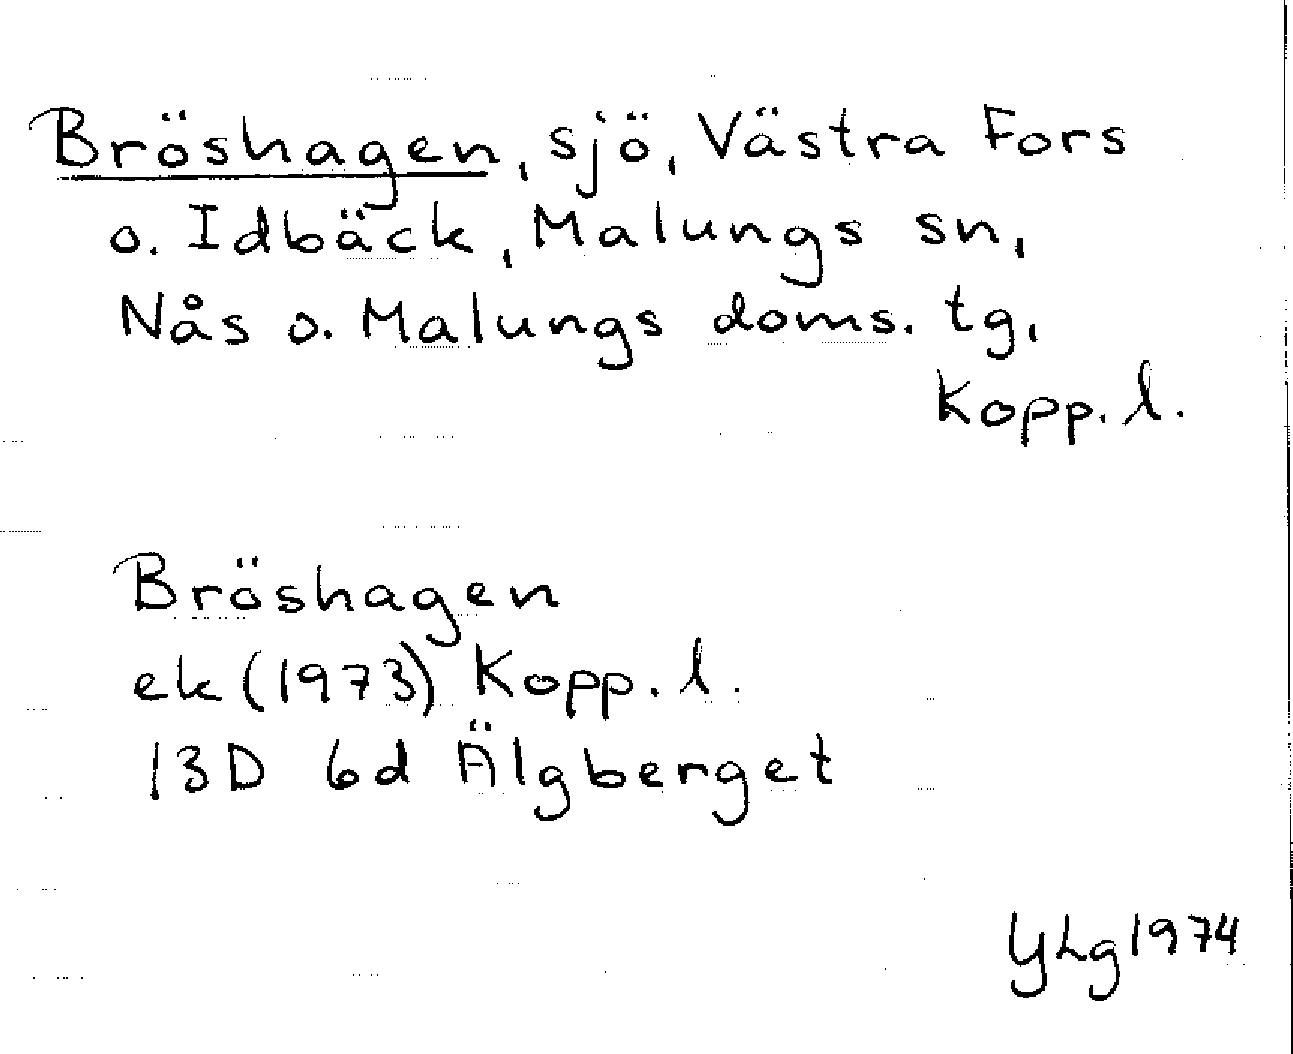 Bröshagen, sjö, Västra Fors
o. Idbäck, Malungs sn,
Nås o. Malungs doms. tg,
Kopp. l.
Bröshagen
ek (1973) Kopp. l.
13D 6d Älgberget
YLg 1974